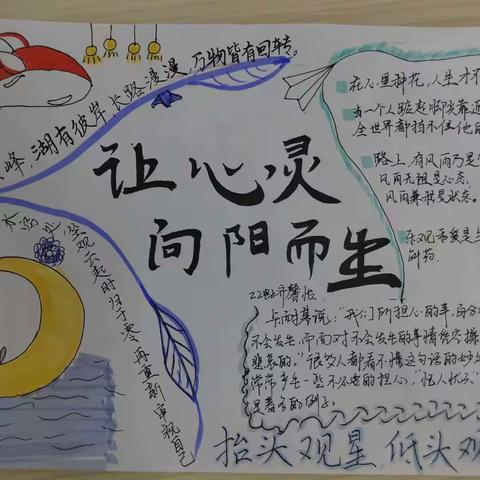 峰,湖有彼岸,长路漫漫,万物皆有回转。
让心灵
向阳而生
在心里种花,人生才不
当一个人踮起脚尖靠近
全世界都挡不住他的
路上,有风雨乃是
风雨无阻是心态,
风雨兼程是状态。
乐观和爱是
解药。
坐观云起时归于零 再重新审视自己
卡耐基说:"我们所担心的事,百分
不会发生,而面对不会发生的事情
悲哀的。"很多人都看不懂这句话的妙
常常产生一些不必要的担心,"杞人忧天"
是著名的例子。
抬头观星 低头观